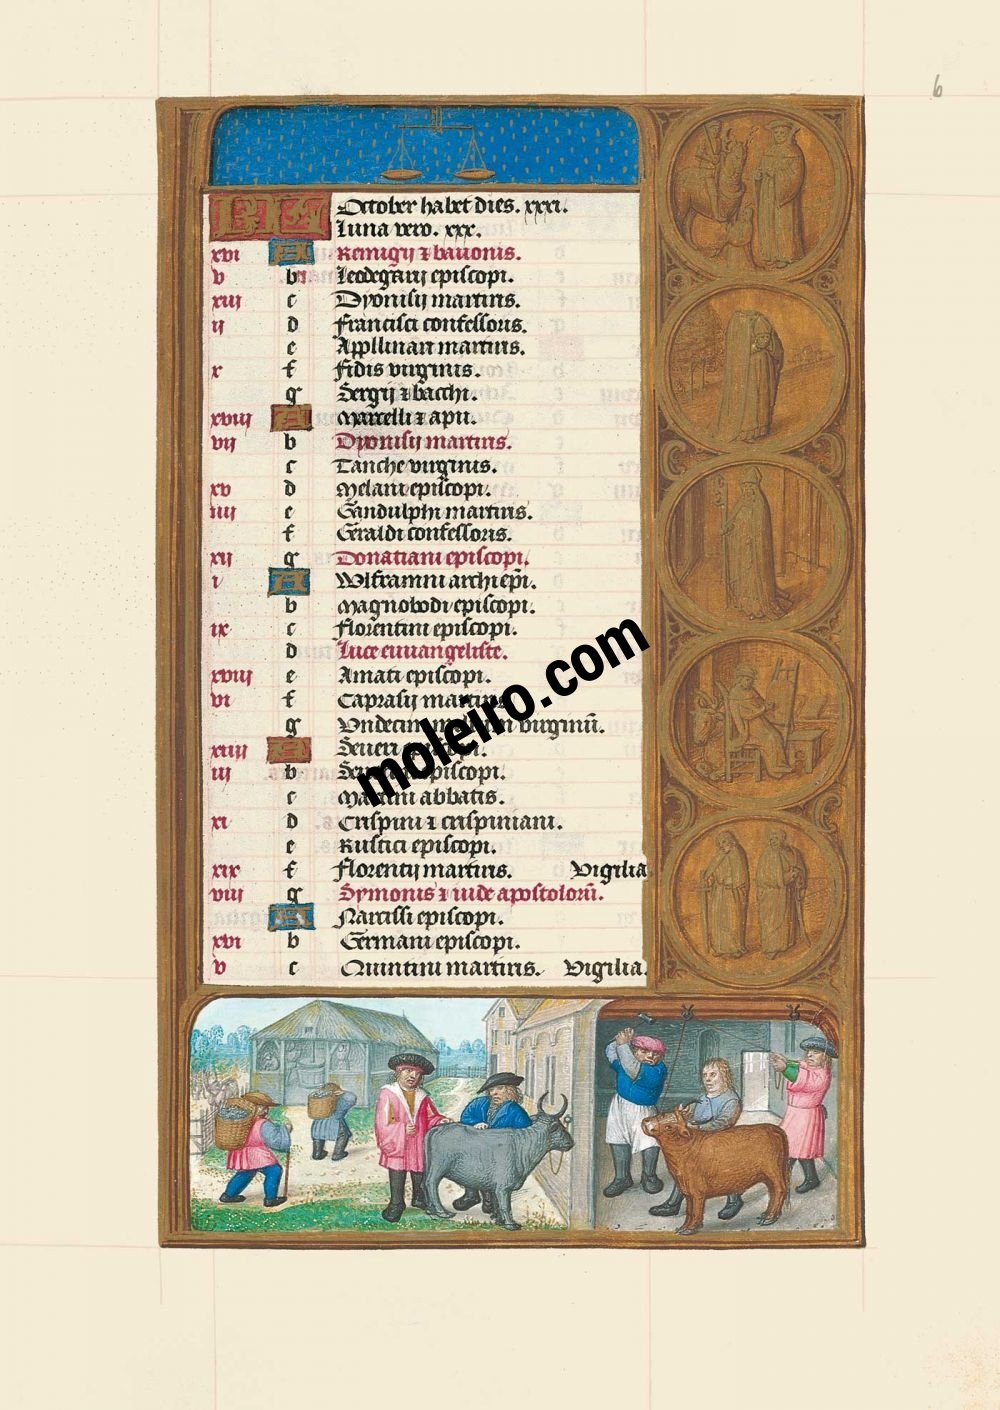 6
KL October habet dies. xxxi.
Luna vero. xxx.
xvi A Remigij ⁊ bauonis.
v b Leodegarij episcopi.
xiij c Dyonisij martiris.
ij d Francisci confessoris.
e Appllinari martiris.
x f Fidis virginis.
g Sergij ⁊ bacchi.
xviij A Marcelli ⁊ apii.
vij b Dyonisij martiris.
c Tanche virginis.
xv d Melani episcopi.
iiij e Gandulphi martiris.
f Geraldi confessoris.
xij g Donatiani episcopi.
i A Wlframni archiep̄i.
b Magnobodi episcopi.
ix c Florentini episcopi.
d Luce euuangeliste.
xviij e Amati episcopi.
vi f Caprasij martiris
g Vndecim virginū.
xiiij A Seueri
iij b episcopi.
c abbatis.
xi d Crispini ⁊ crispiniani.
e Rustici episcopi.
xix f Florentij martiris. Vigilia
viij g Symonis ⁊ iude apostolorū.
A Narcissi episcopi.
xvi b Germani episcopi.
v c Quintini martiris. Vigilia.
moleiro.com